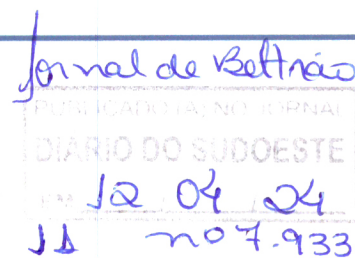 Jornal de Beltrão
PUBLICADO (A) NO JORNAL
DIÁRIO DO SUDOESTE
EM 12 04 24
11 nº 7.933